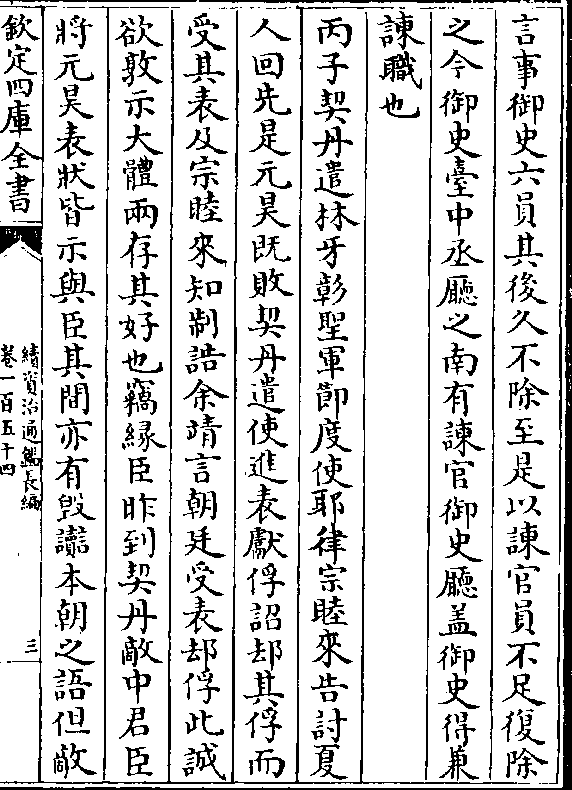 言事御史六員其後久不除至是以諫官員不足復除
之今御史臺中丞廳之南有諫官御史廳盖御史得兼
諫職也
丙子契丹遣林牙彰聖軍節度使耶律宗睦來告討夏
人回先是元昊既敗契丹遣使進表獻俘詔却其俘而
受其表及宗睦來知制誥余靖言朝廷受表却俘此誠
欲敦示大體兩存其好也竊緣臣昨到契丹敵中君臣
將元昊表狀皆示與臣其間亦有毁讟本朝之語但敵
欽定四庫全書
續資治通鑑長編
卷一百五十四
三